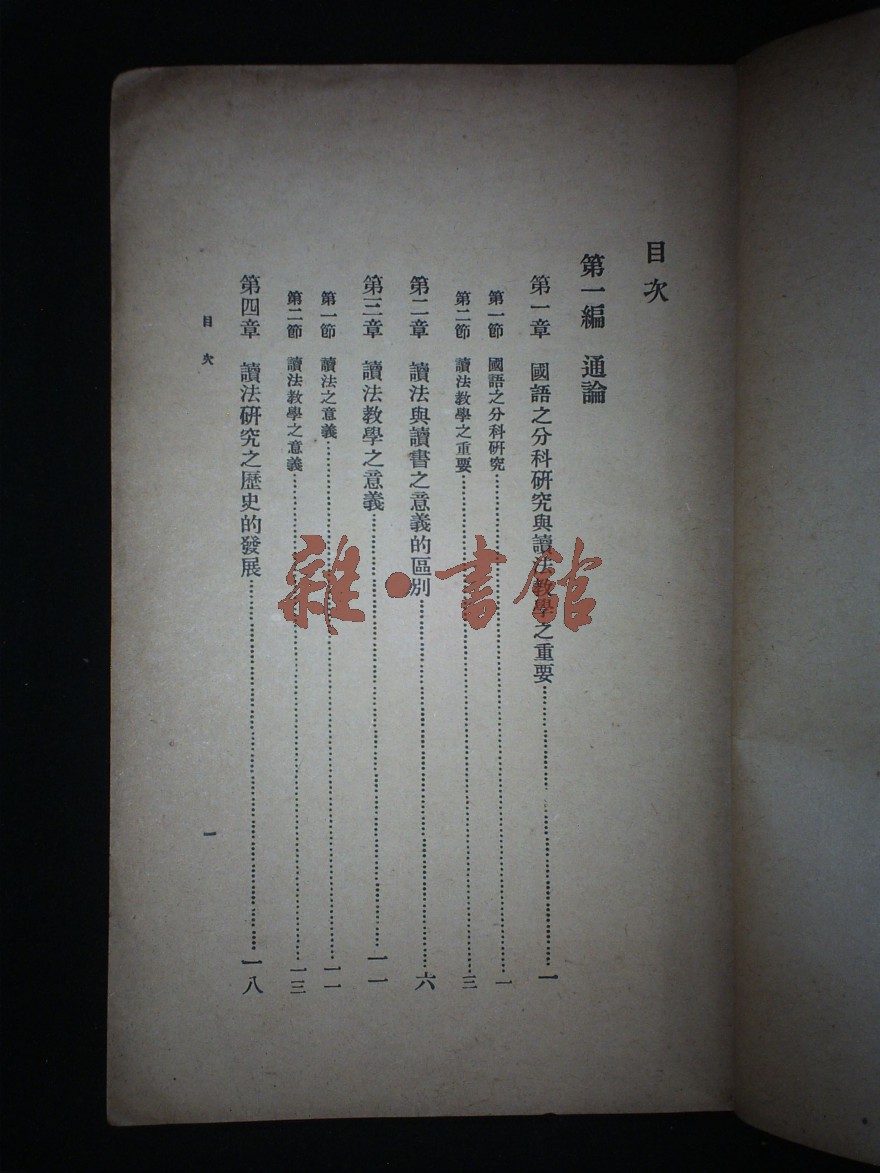 目次
第一編　通論
第一章　國語之分科硏究與讀法教學之重要……一
第一節　國語之分科硏究……一
第二節　讀法教學之重要……三
第二章　讀法與讀書之意義的區別……六
第三章　讀法教學之意義……一一
第一節　讀法之意義……一一
第二節　讀法教學之意義……一三
第四章　讀法硏究之歷史的發展……一八
目次
一
雜·書館